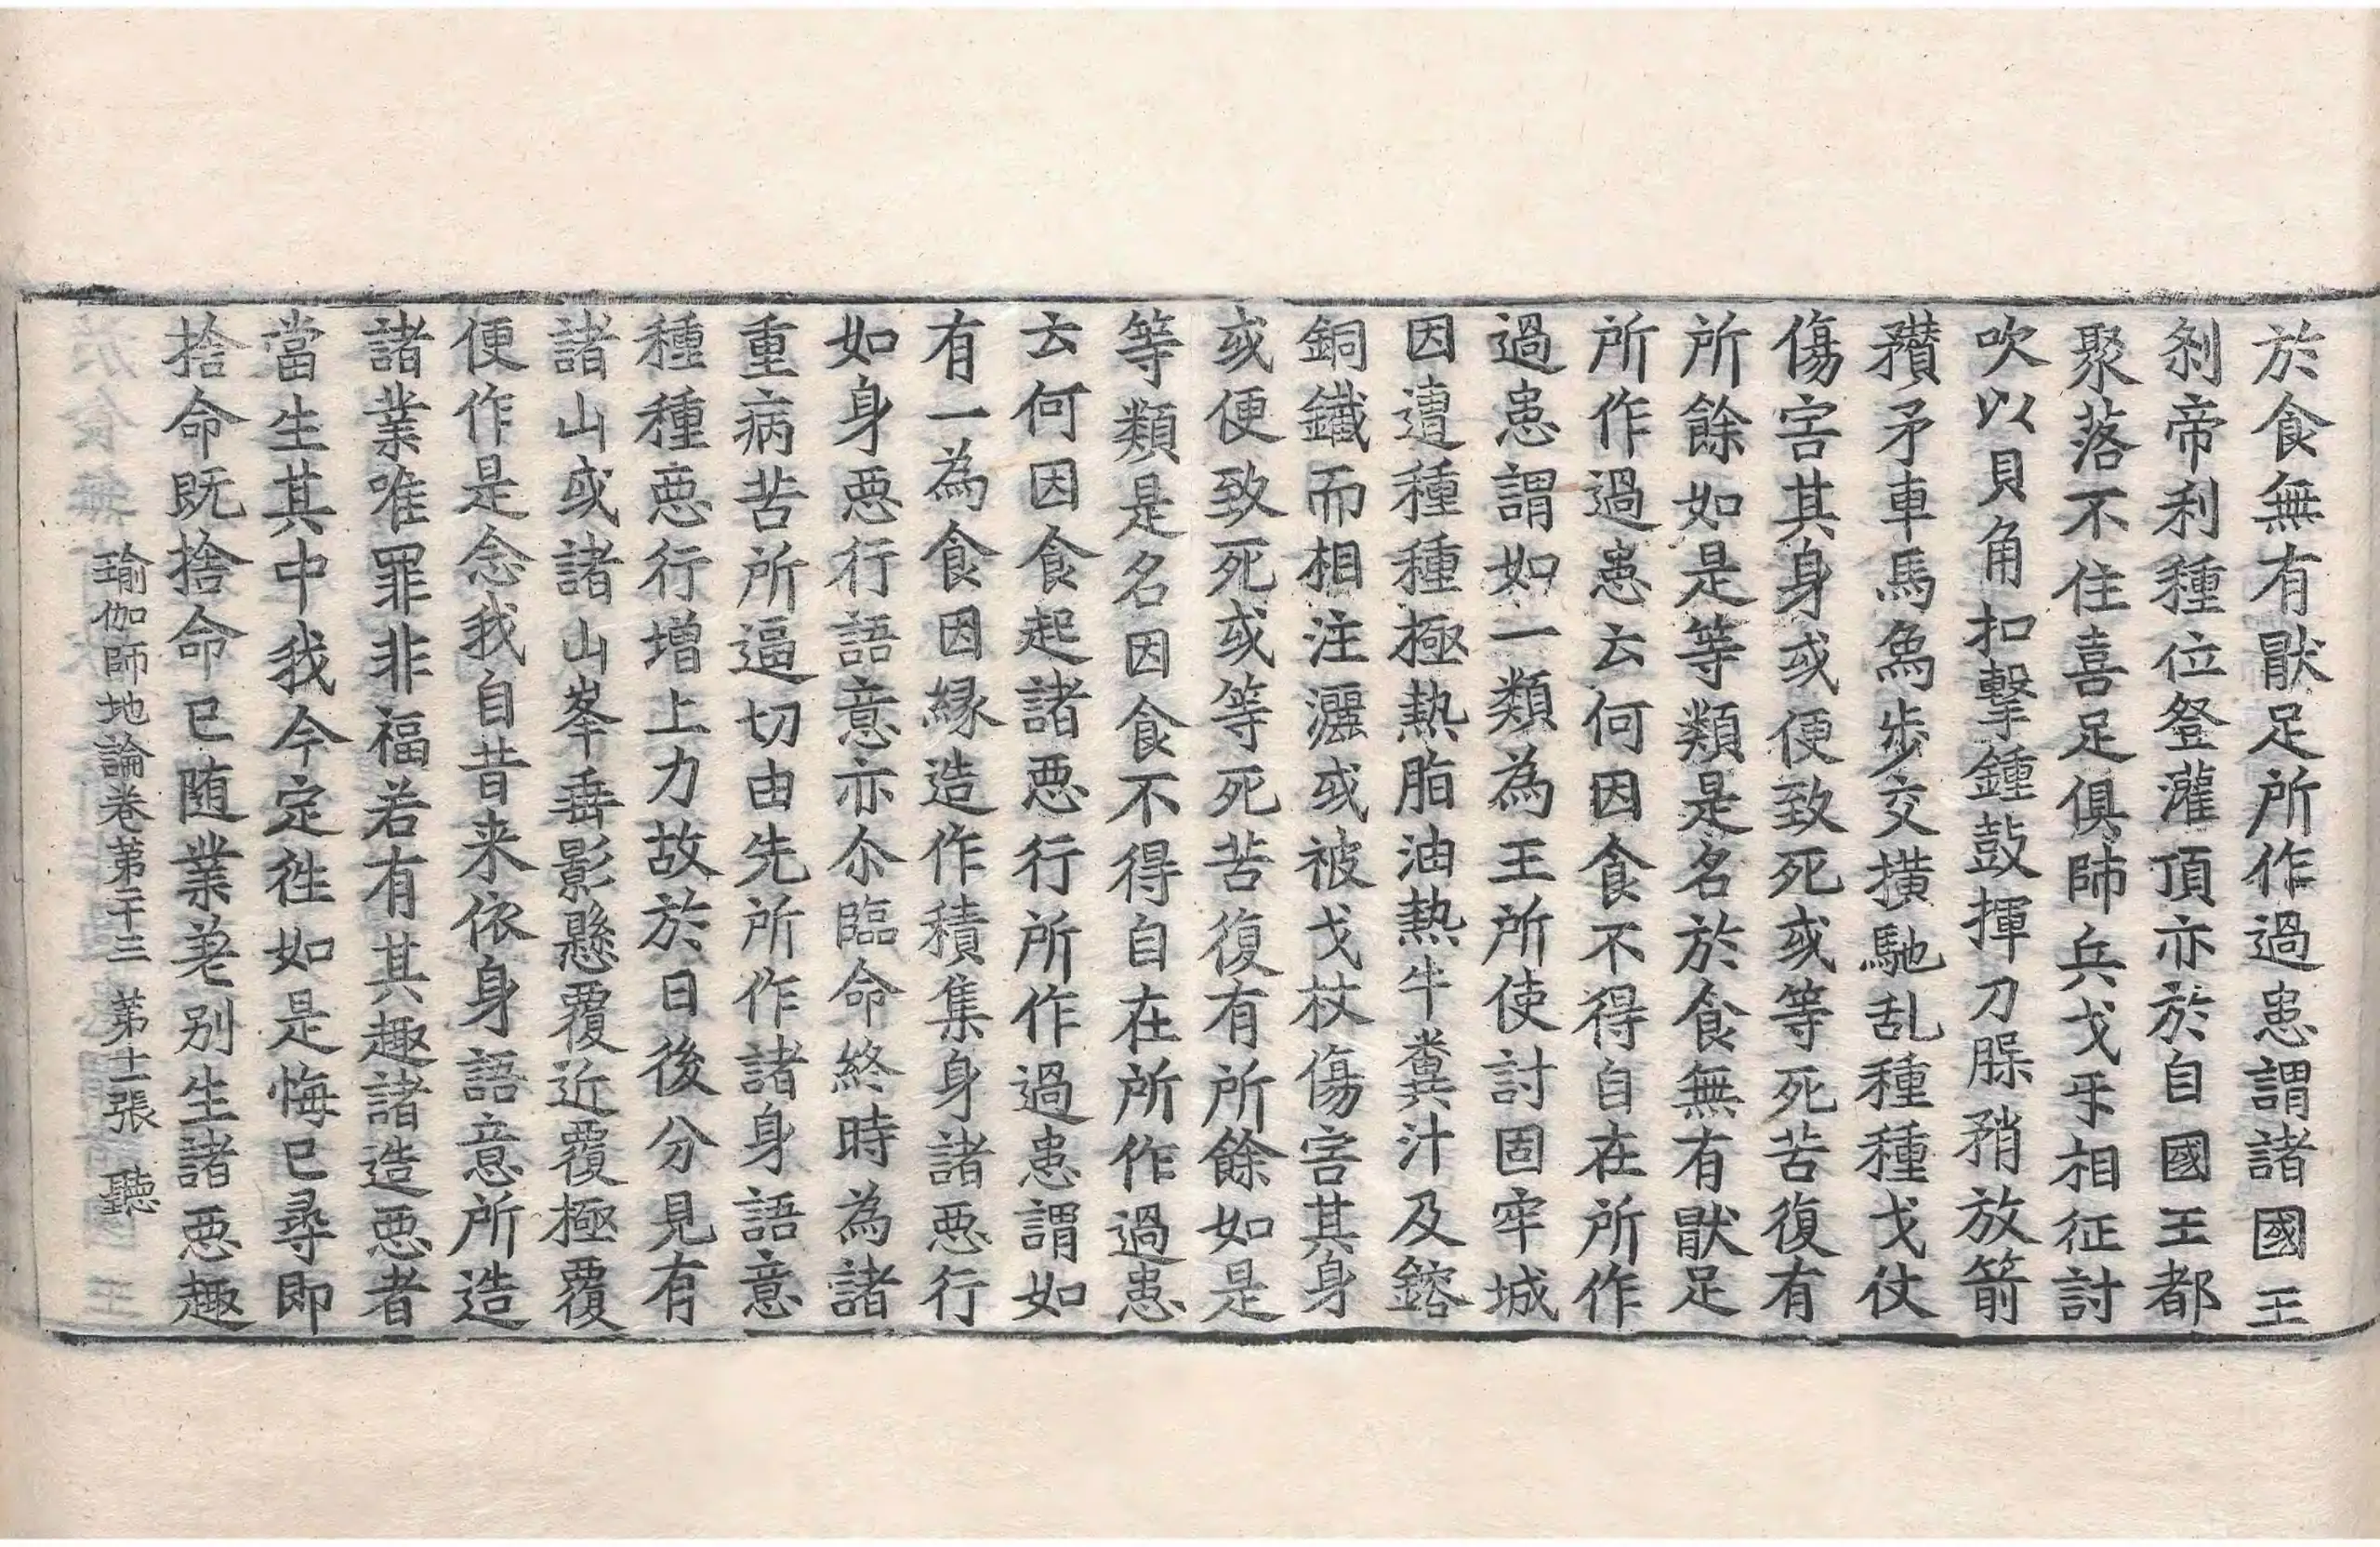 於食無有猒足所作過患謂諸國王
刹帝利種位登灌頂亦於自國王都
聚落不住喜足俱師兵戈㸦相征討
吹以貝角扣擊鍾鼓揮刀𣐺矟放箭
穳矛車馬象步交撗馳乱種種戈仗
傷害其身或便致死或等死苦復有
所餘如是等類是名於食無有猒足
所作過患云何因食不得自在所作
過患謂如一類為王所使討固牢城
因遭種種極熱脂油熱牛糞汁及鎔
銅鐵而相注灑或被戈杖傷害其身
或便致死或等死苦復有所餘如是
等類是名因食不得自在所作過患
云何因食起諸惡行所作過患謂如
有一為食因緣造作積集身諸惡行
如身惡行語意亦尒臨命終時為諸
重病苦所逼切由先所作諸身語意
種種惡行增上力故於日後分見有
諸山或諸山峯垂影懸覆近覆極覆
便作是念我自昔来依身語意所造
諸業唯罪非福若有其趣諸造惡者
當生其中我今定往如是悔已尋即
捨命既捨命已随業差别生諸惡趣
瑜伽師地論卷第二十三 第十二張 聽